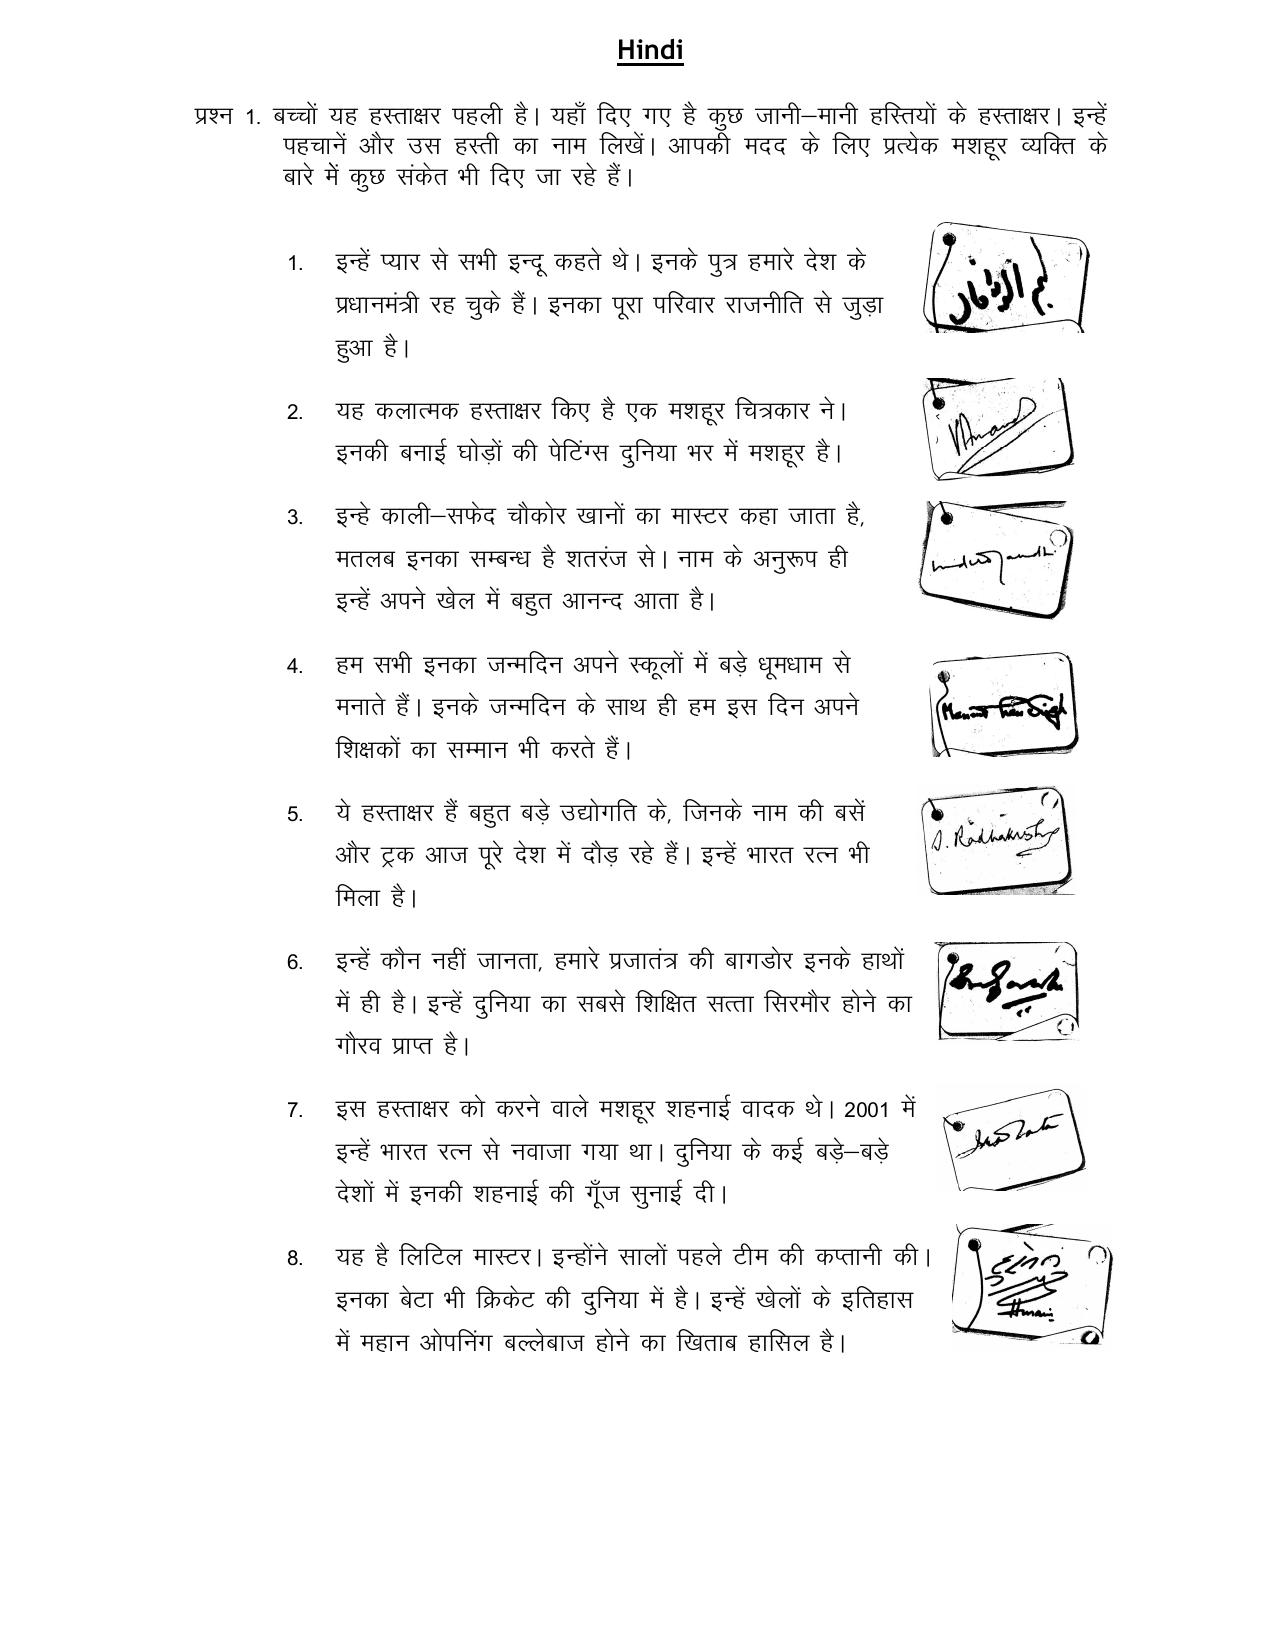 Hindi
प्रश्न 1. बच्चों यह हस्ताक्षर पहली है। यहाँ दिए गए है कुछ जानी–मानी हस्तियों के हस्ताक्षर। इन्हें
पहचानें और उस हस्ती का नाम लिखें। आपकी मदद के लिए प्रत्येक मशहूर व्यक्ति के
बारे में कुछ संकेत भी दिए जा रहे हैं।
1. इन्हें प्यार से सभी इन्दू कहते थे। इनके पुत्र हमारे देश के
प्रधानमंत्री रह चुके हैं। इनका पूरा परिवार राजनीति से जुड़ा
हुआ है।
2. यह कलात्मक हस्ताक्षर किए है एक मशहूर चित्रकार ने।
इनकी बनाई घोड़ों की पेटिंग्स दुनिया भर में मशहूर है।
3. इन्हे काली–सफेद चौकोर खानों का मास्टर कहा जाता है,
मतलब इनका सम्बन्ध है शतरंज से। नाम के अनुरूप ही
इन्हें अपने खेल में बहुत आनन्द आता है।
4. हम सभी इनका जन्मदिन अपने स्कूलों में बड़े धूमधाम से
मनाते हैं। इनके जन्मदिन के साथ ही हम इस दिन अपने
शिक्षकों का सम्मान भी करते हैं।
5. ये हस्ताक्षर हैं बहुत बड़े उद्योगति के, जिनके नाम की बसें
और ट्रक आज पूरे देश में दौड़ रहे हैं। इन्हें भारत रत्न भी
मिला है।
6. इन्हें कौन नहीं जानता, हमारे प्रजातंत्र की बागडोर इनके हाथों
में ही है। इन्हें दुनिया का सबसे शिक्षित सत्ता सिरमौर होने का
गौरव प्राप्त है।
7. इस हस्ताक्षर को करने वाले मशहूर शहनाई वादक थे। 2001 में
इन्हें भारत रत्न से नवाजा गया था। दुनिया के कई बड़े–बड़े
देशों में इनकी शहनाई की गूँज सुनाई दी।
8. यह है लिटिल मास्टर। इन्होंने सालों पहले टीम की कप्तानी की।
इनका बेटा भी क्रिकेट की दुनिया में है। इन्हें खेलों के इतिहास
में महान ओपनिंग बल्लेबाज होने का खिताब हासिल है।